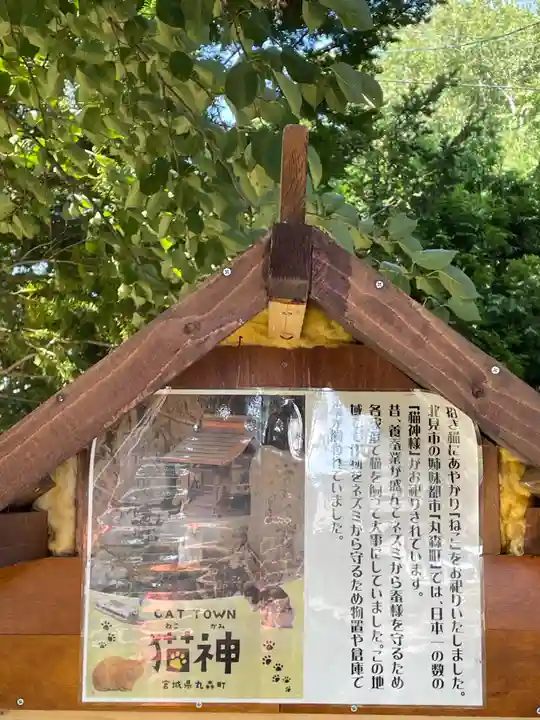 招き猫にあやかり『ねこ』をお祀りいたしました。
北見市の姉妹都市『丸森町』では、日本一の数の
『猫神様』がお祀りされています。
昔、養蚕業が盛んでネズミから蚕様を守るため
各家庭で猫を飼って大事にしていました。この地
域でも作物をネズミから守るため物置や倉庫で
猫が飼われていました。
CAT TOWN
ねこ かみ
猫神
宮城県丸森町